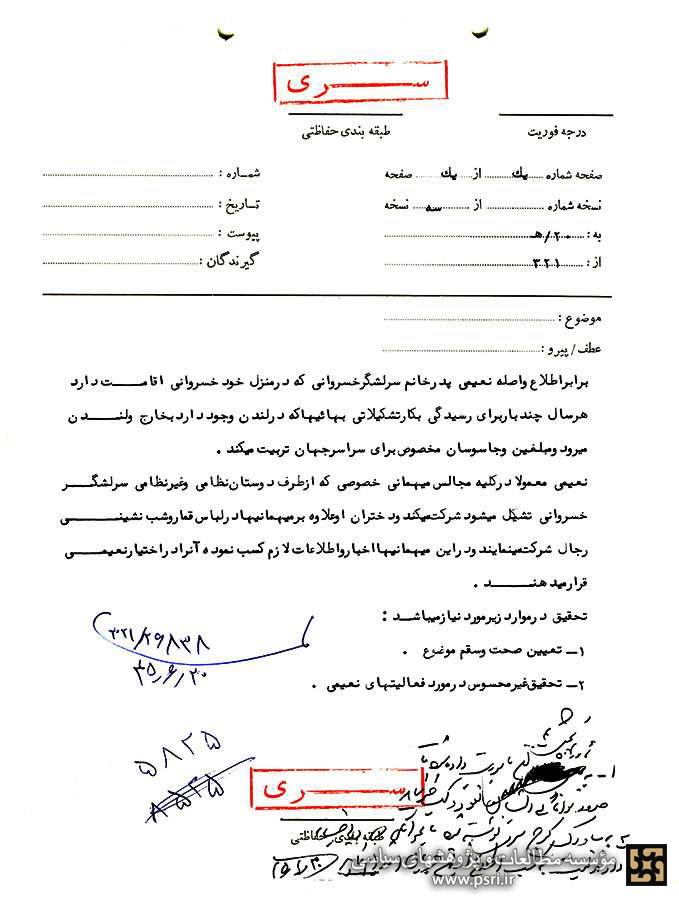 سری
طبقه بندی حفاظتی
درجه فوریت
صفحه شماره یک از یک صفحه
نسخه شماره از سه نسخه
به : ۲۰/هـ
از : ۳۲۱
شماره :
تاریخ :
پیوست :
گیرندگان :
موضوع :
عطف/پیرو :
برابر اطلاع واصله نعیمی پدرخانم سرلشگر خسروانی که درمنزل خود خسروانی اقامت دارد
هرسال چند بار برای رسیدگی بکار تشکیلاتی بهائیها که درلندن وجود دارد بخارج ولندن
میرود ومبلغین وجاسوسان مخصوص برای سراسرجهان تربیت میکند .
نعیمی معمولا درکلیه مجالس میهمانی خصوصی که ازطرف دوستان نظامی وغیرنظامی سرلشگر
خسروانی تشکیل میشود شرکت میکند و دختران او علاوه برمیهمانیها درلباس قمار وشب نشینی
رجال شرکت مینمایند ودر این میهمانیها اخبار واطلاعات لازم کسب نموده آنرا در اختیار نعیمی
قرار میدهند .
تحقیق درموارد زیر مورد نیاز میباشد :
۱ـ تعیین صحت وسقم موضوع .
۲ـ تحقیق غیرمحسوس درمورد فعالیتهای نعیمی .
۳۲۱/۲۹۸۳۸
۴۵/۶/۳۰
۵۸۲۵
سری
طبقه بندی حفاظتی
مؤسسه مطالعات و پژوهشهای سیاسی
www.psri.ir